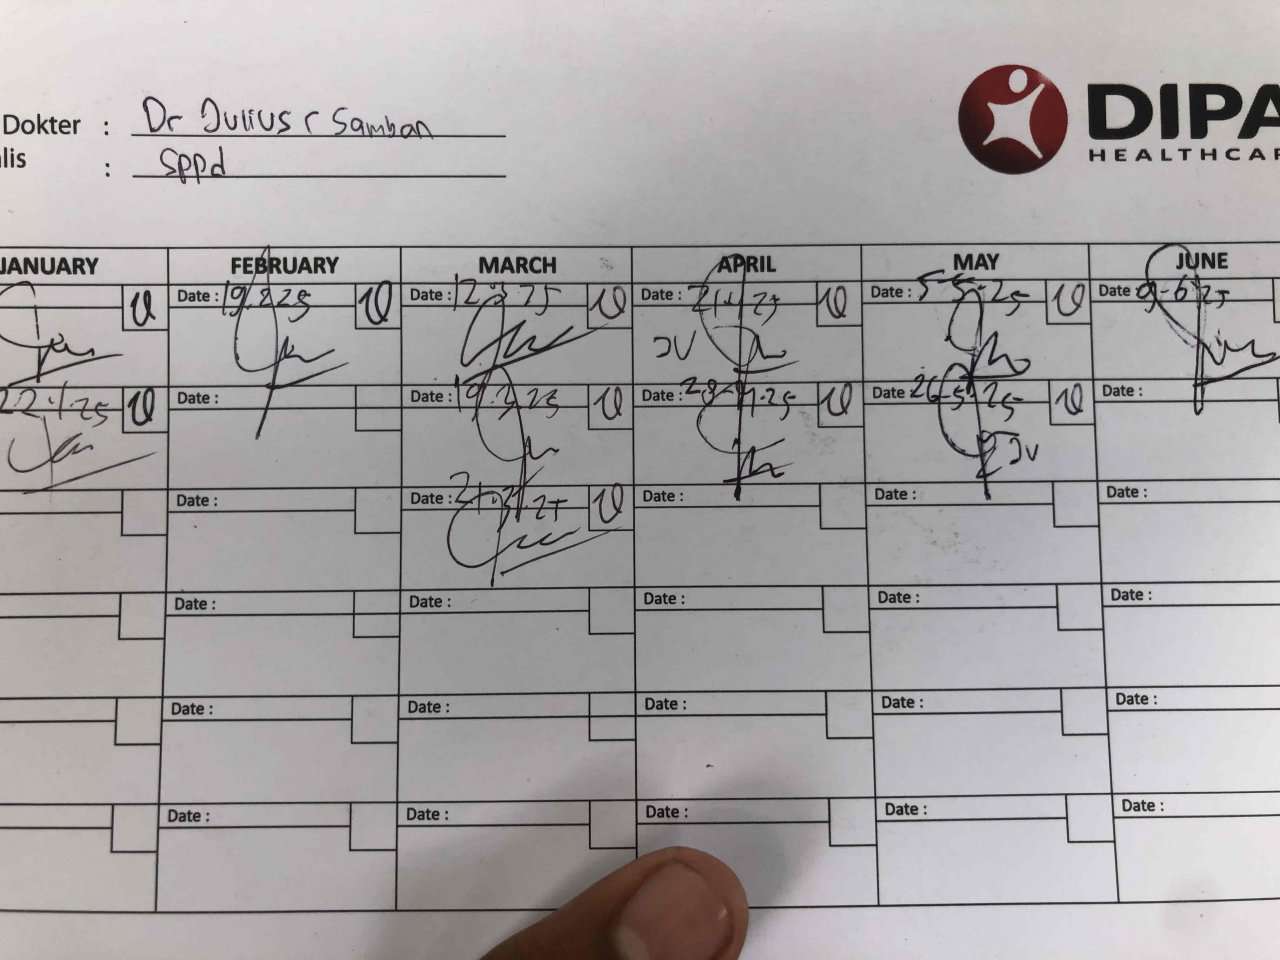 Dokter : Dr Julius r Samban
alis : SPPd
DIPA
HEALTHCAR
JANUARY FEBRUARY MARCH APRIL MAY JUNE
Date : 19.2.25 V Date : 12.3.25 V Date : 21.4.25 V Date : 5-5-25 V Date : 9-6-25
V
JV
22.1.25 V Date : Date : 19.3.25 V Date : 28-4.25 V Date : 26-5-25 V Date :
JV
Date : Date : 21.3.25 V Date : Date : Date :
Date : Date : Date : Date : Date :
Date : Date : Date : Date : Date :
Date : Date : Date : Date : Date :